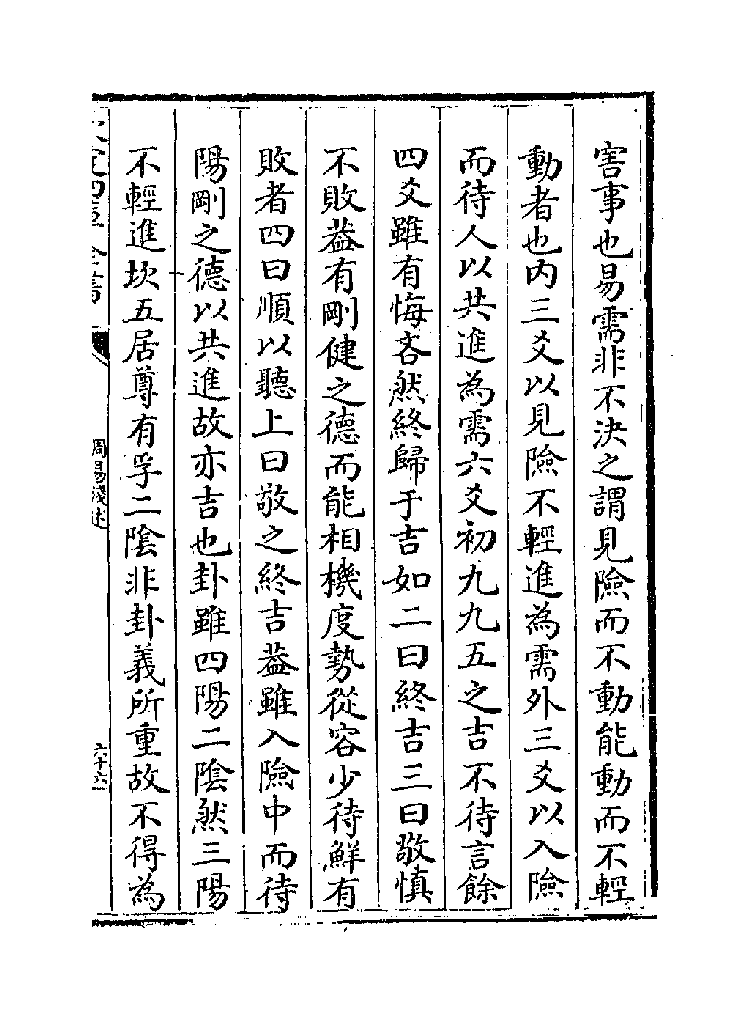 害事也易需非不決之謂見險而不動能動而不輕
動者也内三爻以見險不輕進為需外三爻以入險
而待人以共進為需六爻初九九五之吉不待言餘
四爻雖有悔吝然終歸于吉如二曰終吉三曰敬慎
不敗葢有剛健之德而能相機度勢從容少待鮮有
敗者四曰順以聽上曰敬之終吉葢雖入險中而待
陽剛之德以共進故亦吉也卦雖四陽二陰然三陽
不輕進坎五居尊有孚二陰非卦義所重故不得為
周易淺述